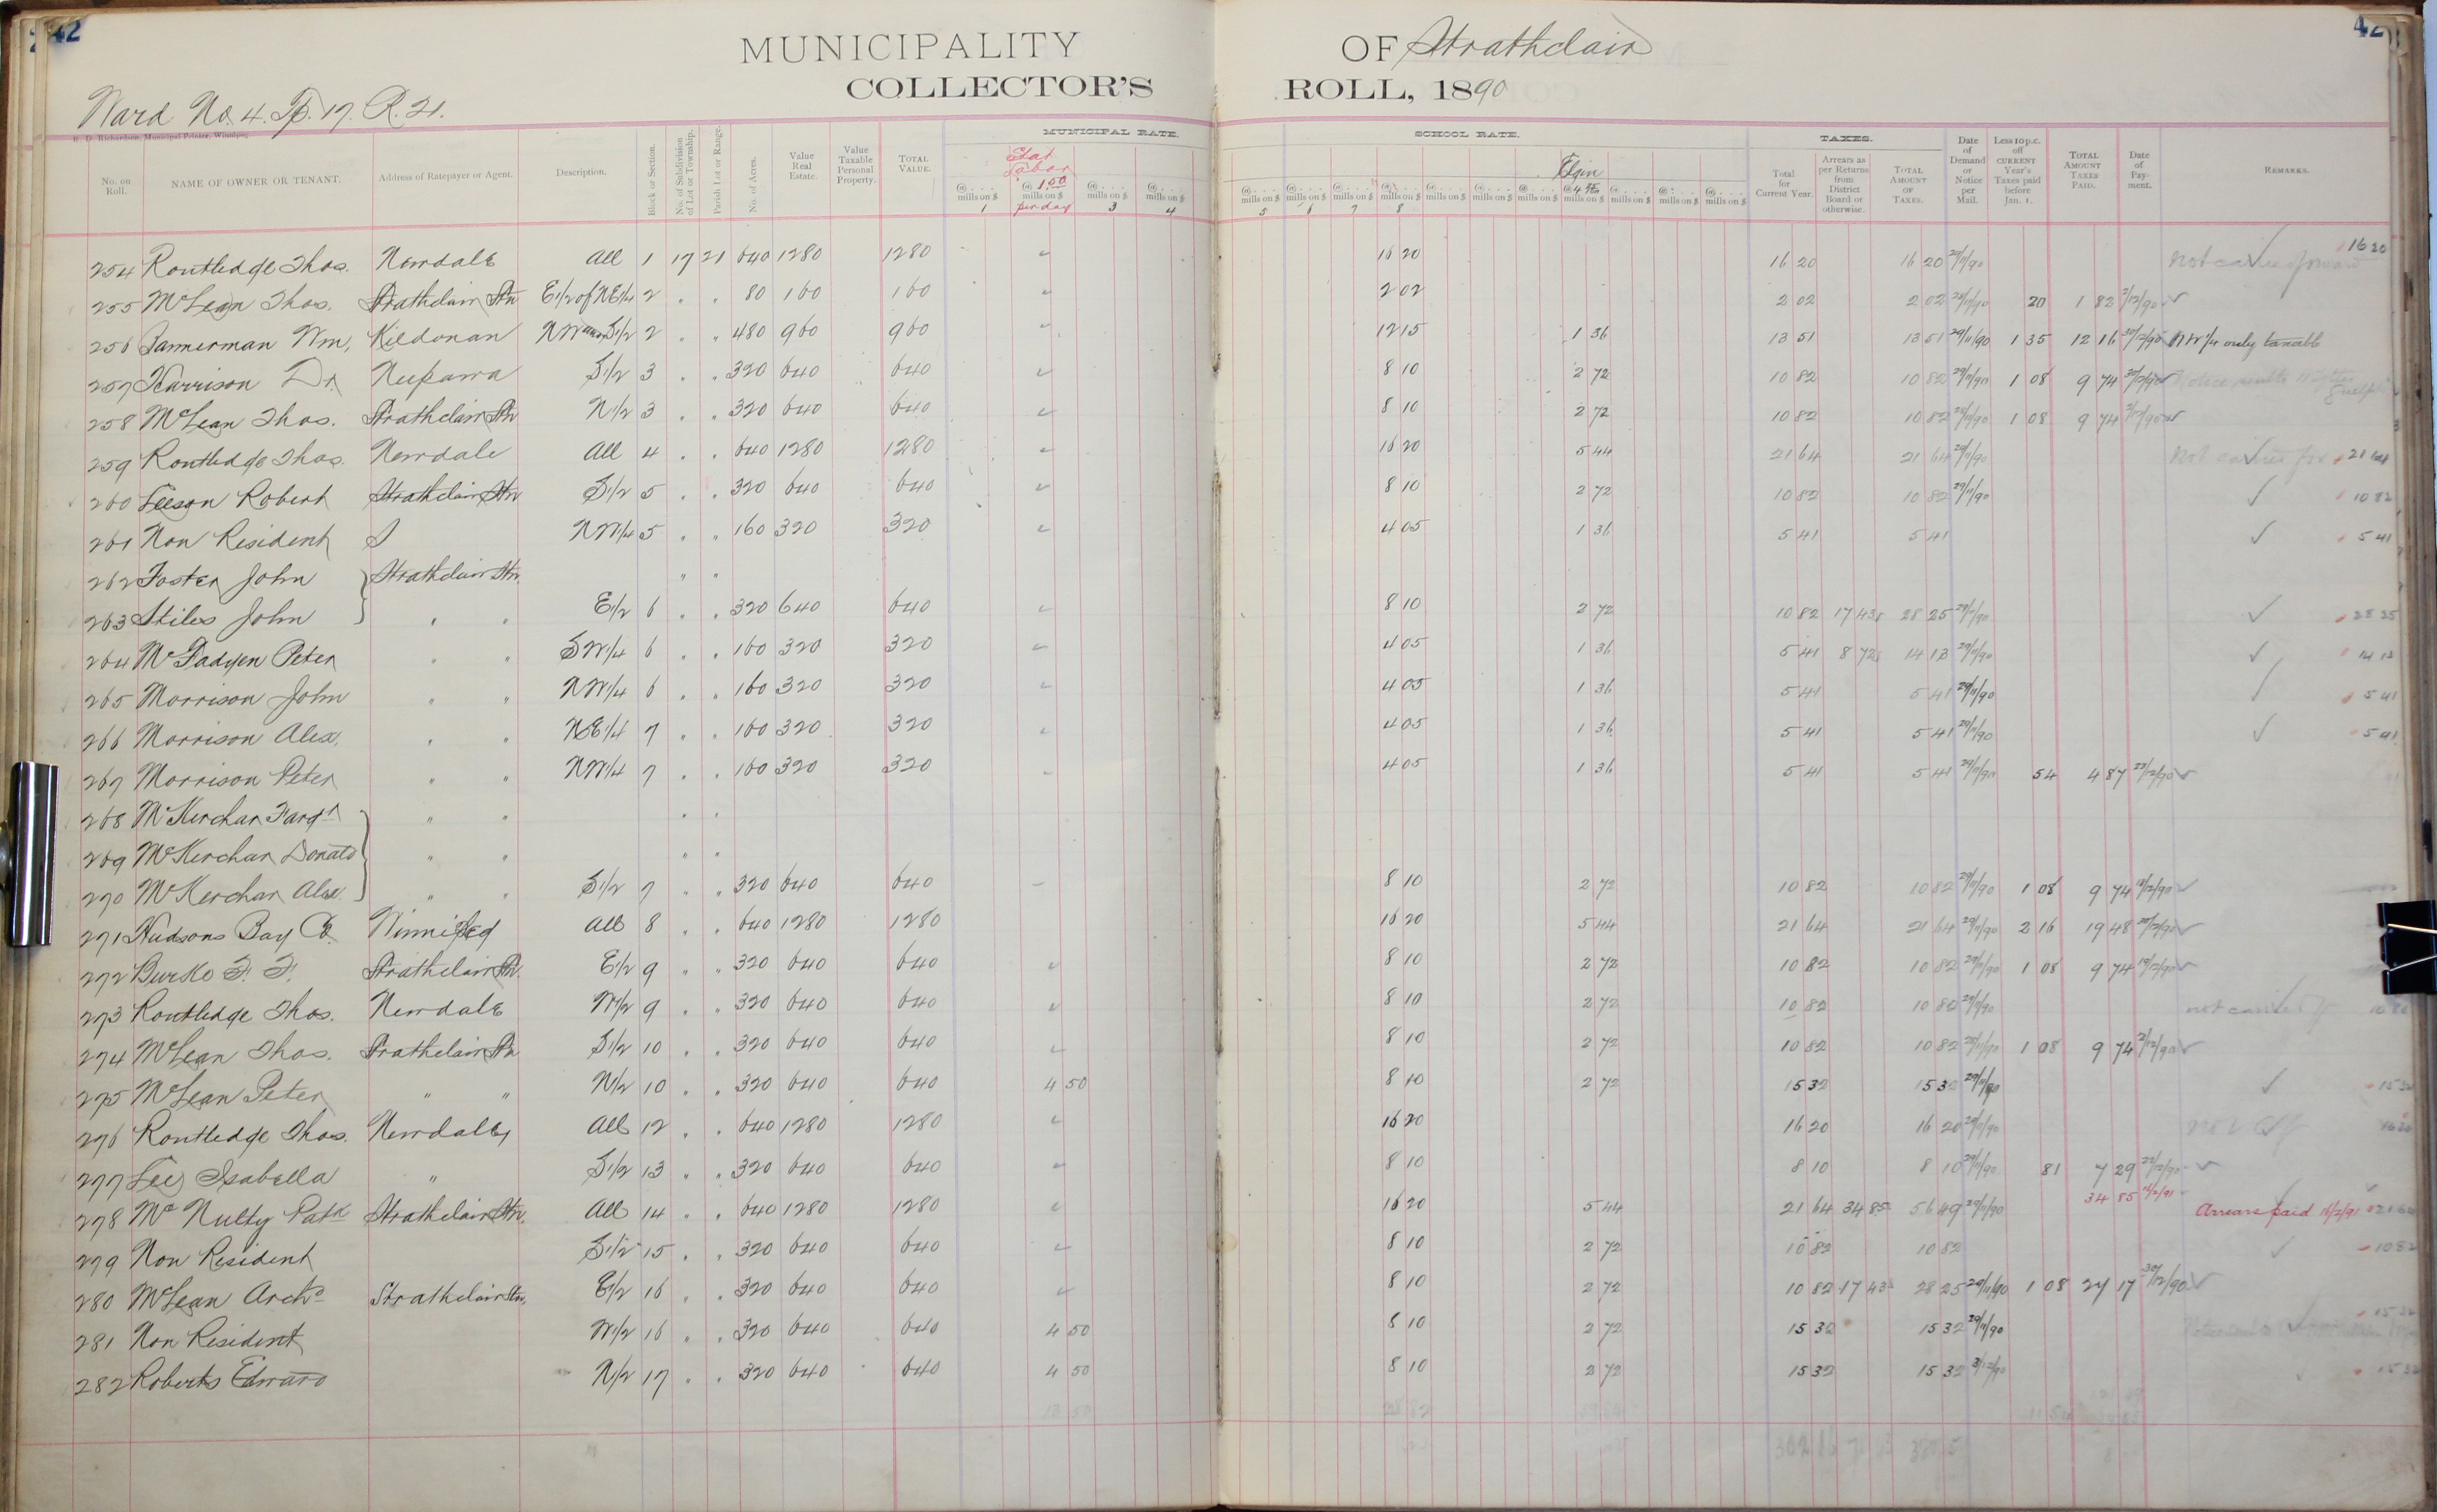 42
42
MUNICIPALITY OF Strathclair
COLLECTOR'S ROLL, 1890
Ward No. 4. Tp. 17. R. 21.
R. D. Richardson, Municipal Printer, Winnipeg.
MUNICIPAL RATE. SCHOOL RATE. TAXES.
No. on Roll. NAME OF OWNER OR TENANT. Address of Ratepayer or Agent. Description. Block or Section. No. of Subdivision of Lot or Township. Parish Lot or Range. No. of Acres. Value Real Estate. Value Taxable Personal Property. TOTAL VALUE. Stat Labor 1.50 per day Elgin Total for Current Year. Arrears as per Returns from District Board or otherwise. TOTAL AMOUNT OF TAXES. Date of Demand or Notice per Mail. Less 10 p.c. off CURRENT Year's Taxes paid before Jan. 1. TOTAL AMOUNT TAXES PAID. Date of Payment. REMARKS.
254 Routledge Thos. Newdale All 1 17 21 640 1280 1280 16 20 16 20 16 20 29/11/90 not carried forward 16 20
255 McLean Thos. Strathclair Stn E1/2 of NE1/4 2 . . 80 160 160 2 02 2 02 2 02 29/11/90 20 1 82 2/12/90
256 Bannerman Wm, Kildonan NW and S1/2 2 . " 480 960 960 12 15 1 36 13 51 13 51 29/11/90 1 35 12 16 30/12/90 NW 1/4 only taxable
257 Harrison Dr. Neepawa S1/2 3 . . 320 640 640 8 10 2 72 10 82 10 82 29/11/90 1 08 9 74 30/12/90
258 McLean Thos. Strathclair Stn N1/2 3 . . 320 640 640 8 10 2 72 10 82 10 82 29/11/90 1 08 9 74 2/12/90
259 Routledge Thos. Newdale All 4 . . 640 1280 1280 16 20 5 44 21 64 21 64 29/11/90 not carried for 21 64
260 Leeson Robert Strathclair Stn S1/2 5 . . 320 640 640 8 10 2 72 10 82 10 82 29/11/90 10 82
261 Non Resident NW1/4 5 . " 160 320 320 4 05 1 36 5 41 5 41 5 41
262 Foster John Strathclair Stn. " "
263 Stiles John " " E1/2 6 . . 320 640 640 8 10 2 72 10 82 17 43 28 25 29/11/90 28 25
264 McFadyen Peter " " SW1/4 6 . . 160 320 320 4 05 1 36 5 41 8 72 14 13 29/11/90 14 13
265 Morrison John " " NW1/4 6 . . 160 320 320 4 05 1 36 5 41 5 41 29/11/90 5 41
266 Morrison Alex. " " NE1/4 7 " . 160 320 320 4 05 1 36 5 41 5 41 29/11/90 5 41
267 Morrison Peter " " NW1/4 7 . . 160 320 320 4 05 1 36 5 41 5 41 29/11/90 54 4 87 22/12/90
268 McKerchar Farqr " " " "
269 McKerchar Donald " " " "
270 McKerchar Alex. " " S1/2 7 " " 320 640 640 8 10 2 72 10 82 10 82 29/11/90 1 08 9 74 18/12/90
271 Hudsons Bay Co. Winnipeg All 8 . . 640 1280 1280 16 20 5 44 21 64 21 64 29/11/90 2 16 19 48 20/12/90
272 Burke F. F. Strathclair Stn. E1/2 9 " " 320 640 640 8 10 2 72 10 82 10 82 29/11/90 1 08 9 74 19/12/90
273 Routledge Thos. Newdale W1/2 9 . " 320 640 640 8 10 2 72 10 82 10 82 29/11/90 not carried 10 82
274 McLean Thos. Strathclair Stn S1/2 10 . . 320 640 640 8 10 2 72 10 82 10 82 29/11/90 1 08 9 74 2/12/90
275 McLean Peter " " N1/2 10 . . 320 640 640 4 50 8 10 2 72 15 32 15 32 29/11/90 15 32
276 Routledge Thos. Newdale All 12 . . 640 1280 1280 16 20 16 20 16 20 29/11/90 16 20
277 Lee Isabella " S1/2 13 " . 320 640 640 8 10 8 10 8 10 29/11/90 81 7 29 22/12/90
278 McNulty Patk Strathclair Stn. All 14 . . 640 1280 1280 16 20 5 44 21 64 34 85 56 49 29/11/90 34 85 16/2/91 Arrears paid 16/2/91 21 64
279 Non Resident S1/2 15 . . 320 640 640 8 10 2 72 10 82 10 82 10 82
280 McLean Archd Strathclair Stn. E1/2 16 . . 320 640 640 8 10 2 72 10 82 17 43 28 25 29/11/90 1 08 27 17 30/12/90
281 Non Resident W1/2 16 . . 320 640 640 4 50 8 10 2 72 15 32 15 32 29/11/90 15 32
282 Roberts Edward N1/2 17 . . 320 640 640 4 50 8 10 2 72 15 32 15 32 3/12/90 15 32
13 50